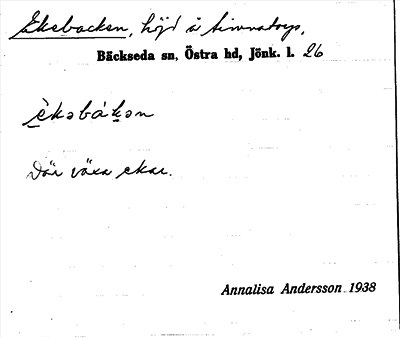 Ekebacken, höjd å
Bäckseda sn, Östra hd, Jönk. l. 26
èkəbákən
Där växa ekar.
Annalisa Andersson 1938